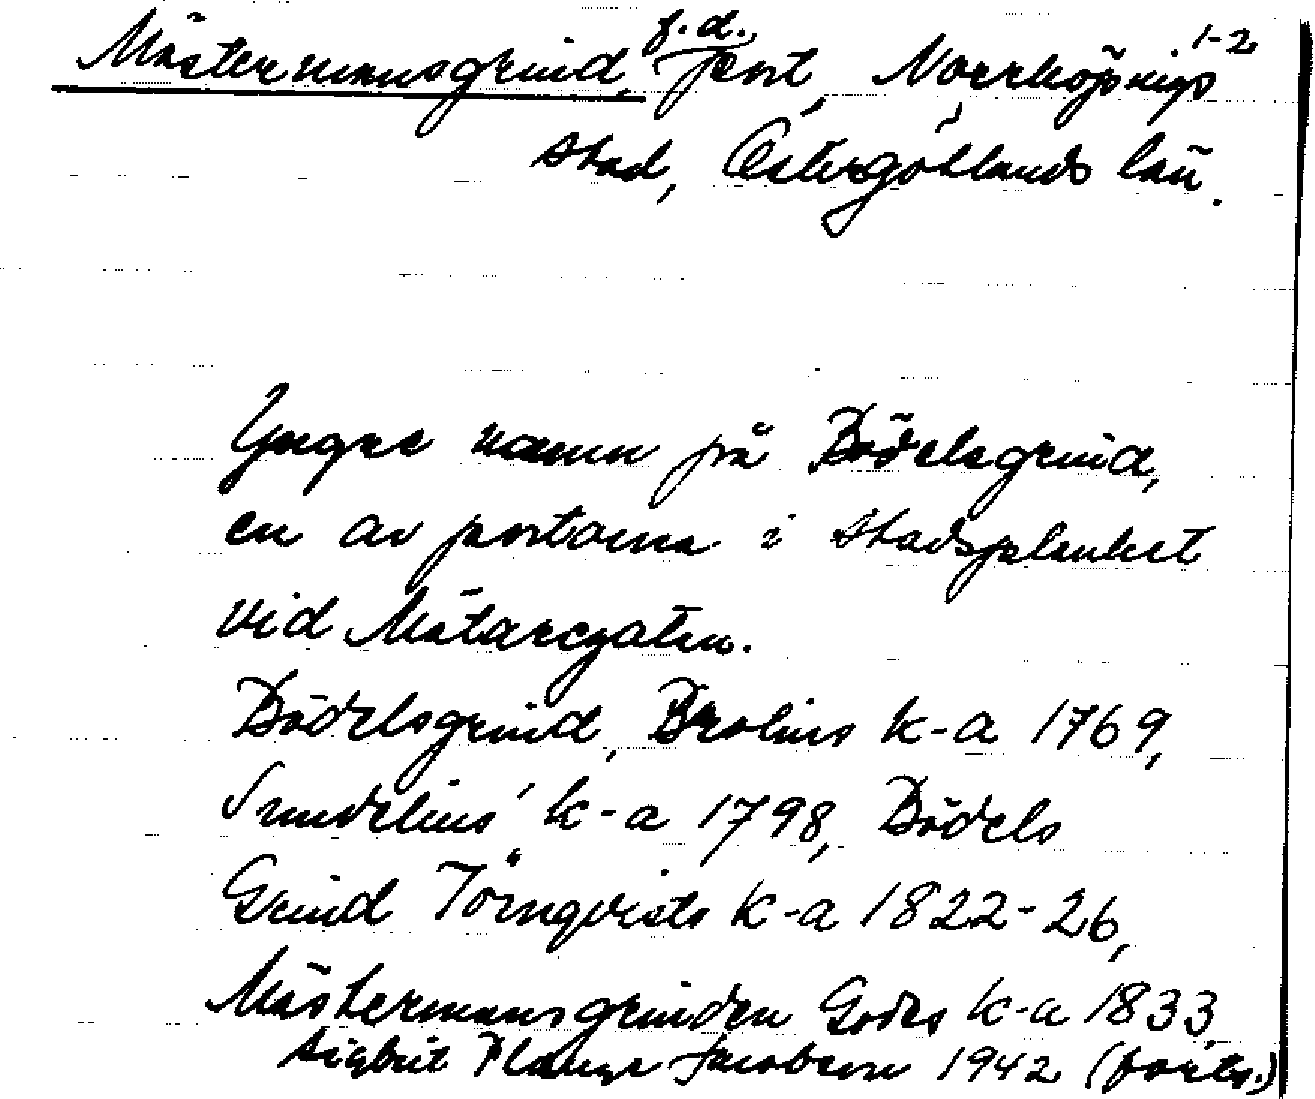 Mästermansgrind, f.d. port, Norrköpings 1-2
stad, Östergötlands län.
Yngre namn på Bödelsgrind,
en av portarna i stadsplanket
vid Mätaregatan.
Bödelsgrind, Brolins k-a 1769,
Sundelius' k-a 1798, Bödels
Grind Törnqvists k-a 1822-26,
Mästermansgrinden Godes k-a 1833
Sigbrit Plænge Jacobson 1942 (forts.)